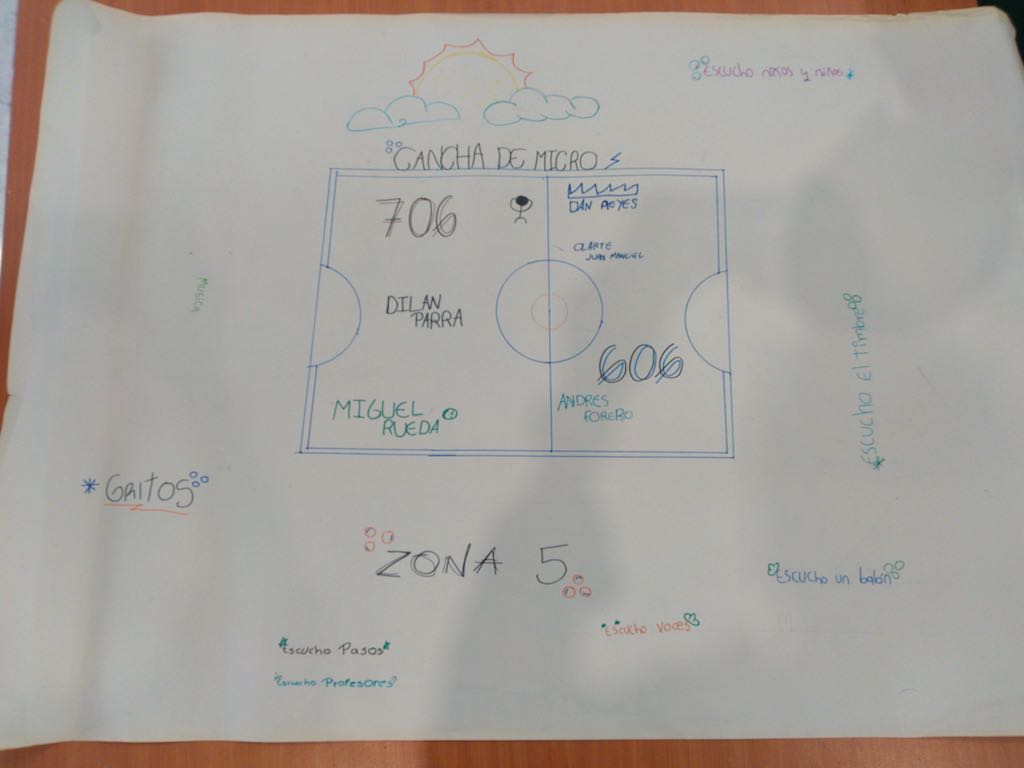 Escucho niños y niñas
CANCHA DE MICRO
706
DAN REYES
OLARTE
JUAN MANUEL
MUSICA
DILAN
PARRA
Escucho El timbre
606
MIGUEL
RUEDA
ANDRES
FORERO
GRITOS
ZONA 5
Escucho un balón
Escucho voces
Escucho Pasos
Escucho Profesores